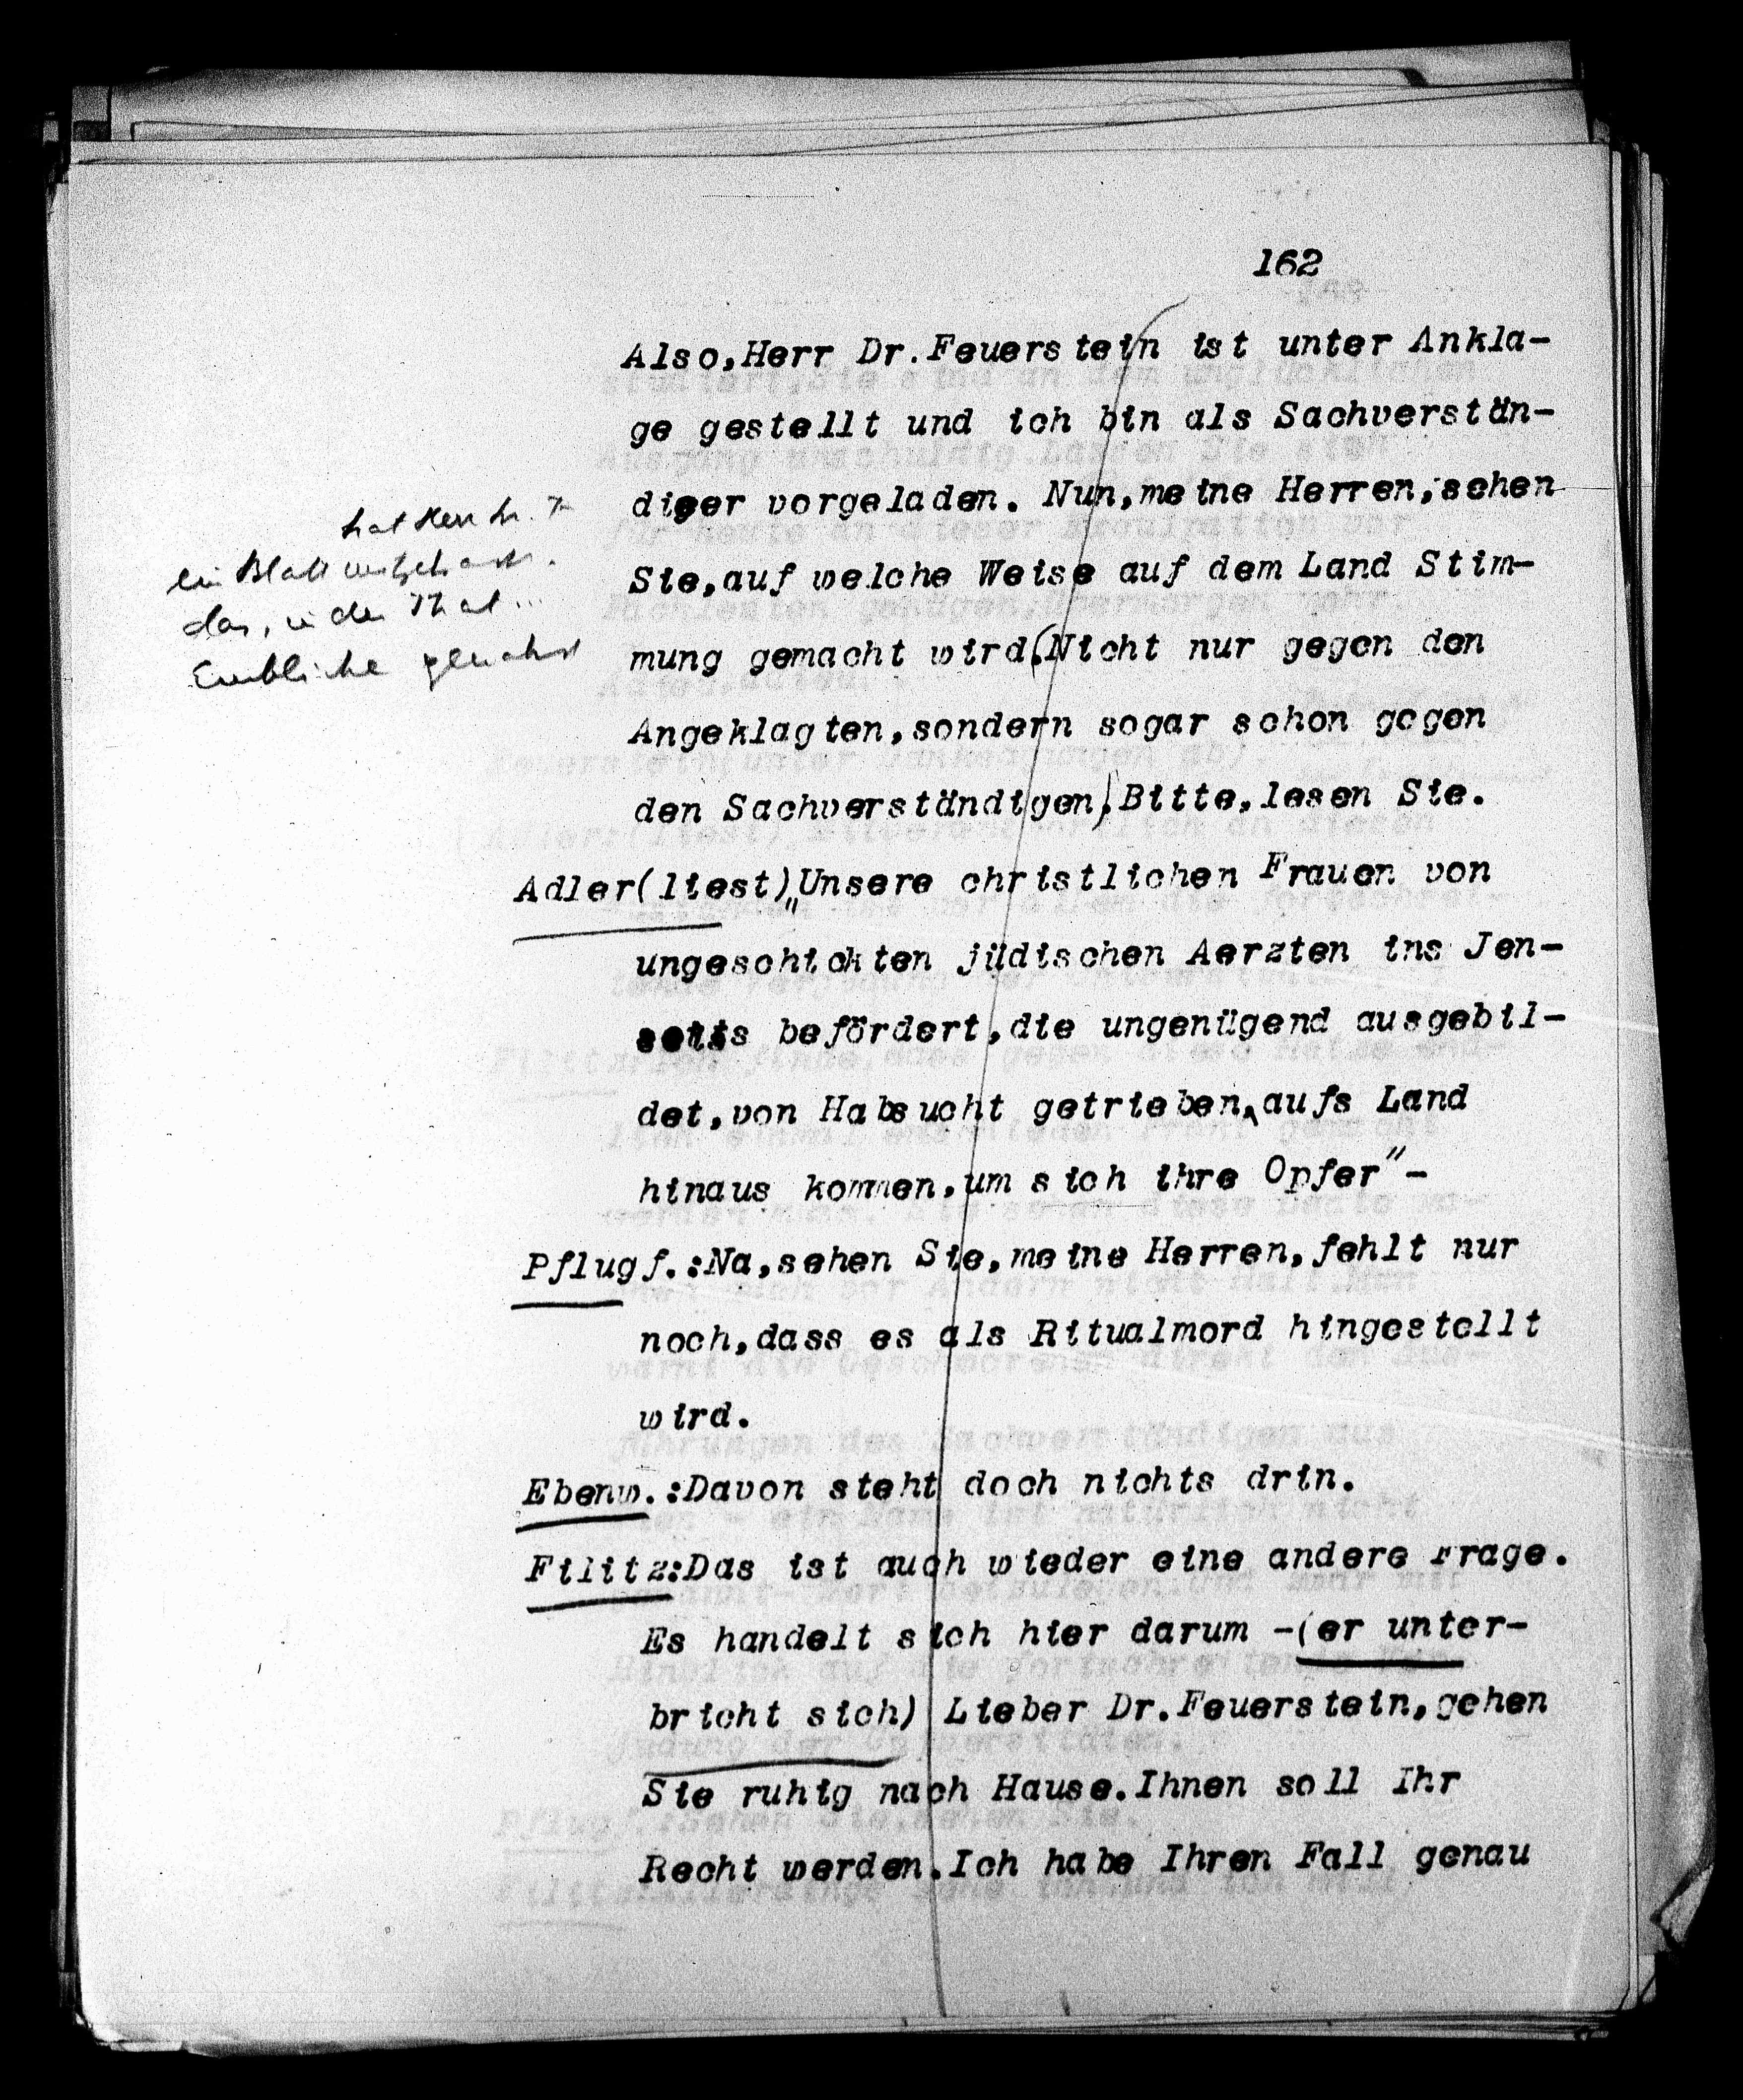 162
Also,Herr Dr.Feuerstein ist unter Ankla-
ge gestellt und ich bin als Sachverstän-
diger vorgeladen. Nun,meine Herren,sehen
hat Herr Dr. F
ein Blatt
das, in der That...
Sie,auf welche Weise auf dem Land Stim-
mung gemacht wird.(Nicht nur gegen den
Angeklagten,sondern sogar schon gegen
den Sachverständigen).Bitte,lesen Sie.
Adler(liest)„Unsere christlichen Frauen von
ungeschickten jüdischen Aerzten ins Jen-
seits befördert,die ungenügend ausgebil-
det,von Habsucht getrieben,aufs Land
hinaus kommen,um sich ihre Opfer"-
Pflugf.:Na,sehen Sie,meine Herren,fehlt nur
noch,dass es als Ritualmord hingestellt
wird.
Ebenw.:Davon steht doch nichts drin.
Filitz:Das ist auch wieder eine andere Frage.
Es handelt sich hier darum -(er unter-
bricht sich) Lieber Dr.Feuerstein,gehen
Sie ruhig nach Hause.Ihnen soll Ihr
Recht werden.Ich habe Ihren Fall genau